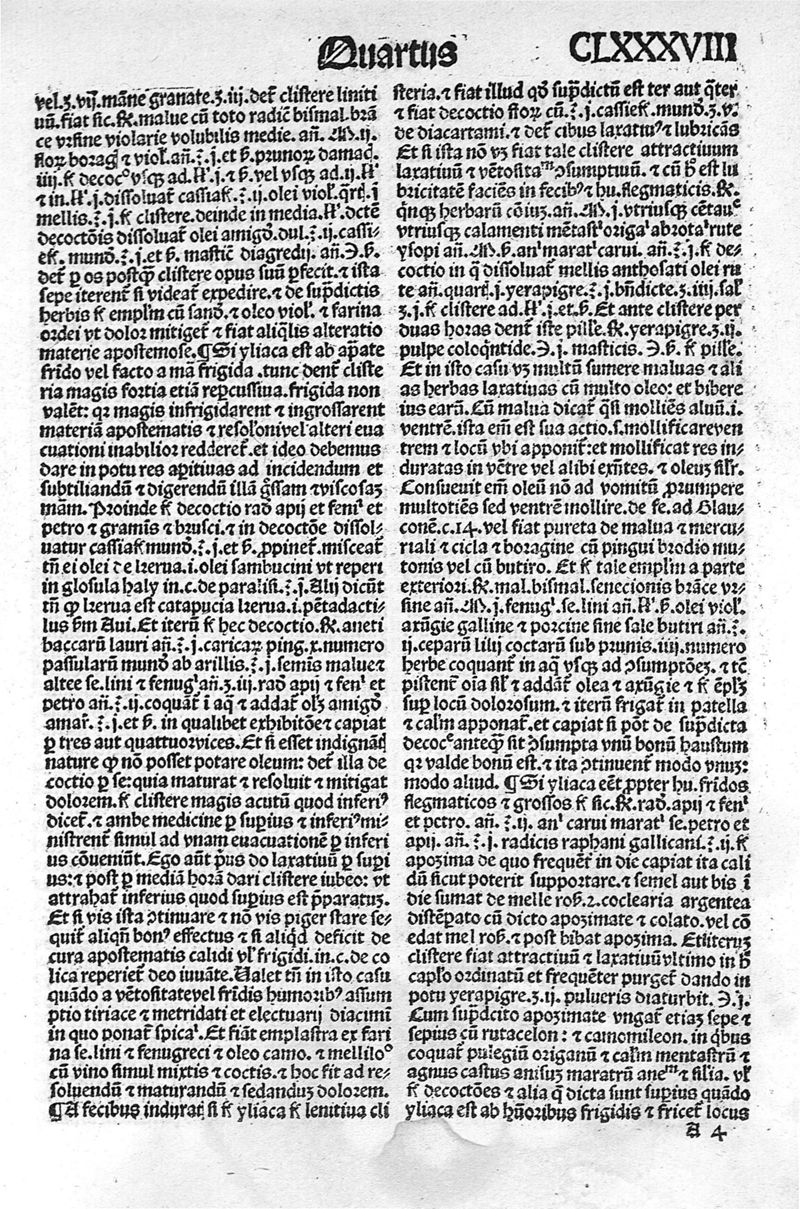 Quartus
CLXXXVIII
vel.ʒ.vij.māne granate.ʒ.iij.det̄ clistere liniti
uū.fiat sic.℞.malue cū toto radic̄ bismal.brā
ce vrsine violarie volubilis medie.añ.M.ij.
floꝝ boraḡ ⁊ viol̄.añ.℥.j.et ß.prunoꝝ damaq̄.
mellis.℥.j.k̄ clistere.deinde in media.l̄i.dc̄tē
decoctōis dissoluat̄ olei amigd̄.dul.℥.ij.cassi-
ek̄.mund̄.℥.j.et ß.mastic̄ diagredij.añ.Ɔ.ß.
det̄ ꝑ os postꝙ̄ clistere opus suū ꝑfecit.⁊ ista
sepe iterent̄ si videat̄ expedire.⁊ de sup̄dictis
herbis k̄ emplm̄ cū sand̄.⁊ oleo viol̄.⁊ farina
ordei vt dolor mitiget̄ ⁊ fiat aliq̄lis alteratio
materie apostemose.¶Si yliaca est ab ap̄ate
fr̄ido vel facto a mā frigida.tunc dent̄ cliste
ria magis fortia etiā reꝑcussiua.frigida non
valēt: qꝛ magis infrigidarent ⁊ ingrossarent
materiā apostematis ⁊ resol̄onivel alteri eua
cuationi inabilior redderet̄.et ideo debemus
dare in potu res aꝑitiuas ad incidendum et
subtiliandū ⁊ digerendū illā g̊ssam ⁊viscosaꝫ
mām.Proinde k̄ decoctio rad̄ apij et feni' et
petro ⁊ gramīs ⁊ brusci.⁊ in decoctōe dissol-
uatur cassiak̄ mund̄.℥.j.et ß.ꝓpinet̄.misceat̄
tn̄ ei olei de kerua.i.olei sambucini vt reperi
in glosula haly in.c.de paralisi.℥.j.Alij dicūt
tm̄ ꝙ kerua est catapucia kerua.i.pētadacti-
lus ßm Aui.Et iterū k̄ hec decoctio.℞.aneti
baccarū lauri añ.℥.j.caricaꝝ ping.x.numero
passularū mund̄ ab arillis.℥.j.semīs malue⁊
altee.se.lini ⁊ fenuḡ'.añ.ʒ.iij.rad̄ apij ⁊ fen' et
petro añ.℥.ij.coquat̄ ī aq̄ ⁊ addat̄ ol̄ꝫ amigd̄
amar̄.℥.j.et ß.in qualibet exhibitōe⁊ capiat
ꝑ tres aut quattuorvices.Et si esset indignās
nature ꝙ nō posset potare oleum: det̄ illa de
coctio ꝑ se:quia maturat ⁊ resoluit ⁊ mitigat
dolorem.k̄ clistere magis acutū quod inferiꝰ
dicet̄.⁊ ambe medicine ꝑ supius ⁊ inferiꝰmi-
nistrent̄ simul ad vnam euacuationē ꝑ inferi
us cōueniūt.Ego aūt pͥus do laxatiuū ꝑ supi
us:⁊ post ꝑ mediā horā dari clistere iubeo: vt
attrahat̄ inferius quod superius est p̄paratuꝫ.
Et si vis ista ɔtinuare ⁊ nō vis piger stare se-
quit̄ aliqn̄ bonꝰ effectus ⁊ si aliq̊d deficit de
cura apostematis calidi vl̄ frigidi.in.c.de co
lica reperiet̄ deo iuuāte.Ualet tn̄ in isto casu
quādo a vētositatevel fr̄idis humoribꝰ assum
ptio tiriace ⁊ metridati et electuarij diacimi
in quo ponat̄ spica'.Et fiāt emplastra ex fari
na se.lini ⁊ fenugreci ⁊ oleo camo.⁊ melliloᵒ
cū vino simul mixtis ⁊ coctis.⁊ hoc fit ad re-
soluendū ⁊ maturandū ⁊ sedanduꝫ dolorem.
¶A fecibus indurat̄ si k̄ yliaca k̄ lenitiua cli
steria.⁊ fiat illud qd̄ sup̄dictū est ter aut q̄ter
⁊ fiat decoctio floꝝ cū.℥.j.cassiek̄.mund̄.ʒ.v.
de diacartami.⁊ det̄ cibus laxatiuꝰ⁊ lubricās
Et si ista nō vꝫ fiat tale clistere attractiuum
laxatiuū ⁊ vētosita^m ɔsumptiuū.⁊ cū ħ est lu
bricitatē faciēs in fecibꝰ⁊ hu.flegmaticis.℞.
q̄nqꝫ herbarū cōiuꝫ.añ.M.j.vtriusqꝫ cētauᵉ
vtriusqꝫ calamenti mētast' origa' abrota' rute
ysopi añ.M.ß.an' marat' carui.añ.℥.j.k̄ de-
coctio in q̄ dissoluat̄ mellis anthosati olei ru
te añ.quart̄.j.yerapigre.℥.j.bn̄dicte.ʒ.iiij.sal̄
ʒ.j.k̄ clistere ad.l̄i.j.et ß.Et ante clistere per
duas horas dent̄ iste pille.℞.yerapigre.ʒ.ij.
pulpe coloq̄ntide.Ɔ.j.masticis.Ɔ.ß.k̄ pille.
Et in isto casu vꝫ multū sumere maluas ⁊ ali
as herbas laxatiuas cū multo oleo: et bibere
ius earū.Cū malua dicat̄ q̄si molliēs aluū.i.
ventrē.ista em̄ est sua actio.s.mollificareven
trem ⁊ locū vbi apponit̄:et mollificat res in-
duratas in vētre vel alibi exn̄tes.⁊ oleuꝫ sil̄r.
Consueuit em̄ oleū nō ad vomitū ꝓrumpere
multotiēs sed ventrē mollire.de fe.ad Glau-
conē.c.14.vel fiat pureta de malua ⁊ mercu-
riali ⁊ cicla ⁊ boragine cū pingui brodio mu-
tonis vel cū butiro.Et k̄ tale emplm̄ a parte
exteriori.℞.mal.bismal.senecionis brāce vr-
sine añ.M.j.fenuḡ'.se.lini añ.l̄i.ß.olei viol̄.
axūgie galline ⁊ porcine sine sale butiri añ.℥.
ij.ceparū lilij coctarū sub prunis.iiij.numero
herbe coquant̄ in aq̄ vsqꝫ ad ɔsumptōeꝫ.⁊ tē
pistent̄ oīa sil̄ ⁊ addāt̄ olea ⁊ axūgie ⁊ k̄ ēpl̄ꝫ
suꝑ locū dolorosum.⁊ iterū frigat̄ in patella
⁊ cal̄m apponat̄.et capiat si pōt de sup̄dicta
decocᵉ anteq̄ꝫ sit ɔsumpta vnū bonū haustum
qꝛ valde bonū est.⁊ ita ɔtinuent̄ modo vnuꝫ:
modo aliud.¶Si yliaca eēt ꝓpter hu.fr̄idos
flegmaticos ⁊ grossos k̄ sic.℞.rad̄.apij ⁊ fen'
et petro.añ.℥.ij.an' carui marat' se.petro et
apij.añ.℥.j.radicis raphani gallicani.℥.ij.k̄
apoꝫima de quo frequēt̄ in die capiat ita cali
dū sicut poterit supportare.⁊ semel aut bis ī
die sumat de melle ros̄.2.coclearia argentea
distēꝑato cū dicto apoꝫimate ⁊ colato.vel cō
edat mel ros̄.⁊ post bibat apoꝫima.Etiteruꝫ
clistere fiat attractiuū ⁊ laxatiuūvltimo in ħ
capl̄o ordinatū et frequēter purget̄ dando in
potu yerapigre.ʒ.ij.pulueris diaturbit.Ɔ.j.
Cum sup̄dcito apoꝫimate vngat̄ etiaꝫ sepe ⁊
sepius cū rutacelon: ⁊ camomileon.in q̄bus
coquat̄ pulegiū origanū ⁊ cal̄m mentastrū ⁊
agnus castus anisuꝫ maratrū ane^m ⁊ silia.vl̄
k̄ decoctōes ⁊ alia q̄ dicta sunt supius quādo
yliaca est ab hūoribus frigidis ⁊ fricet̄ locus
A 4